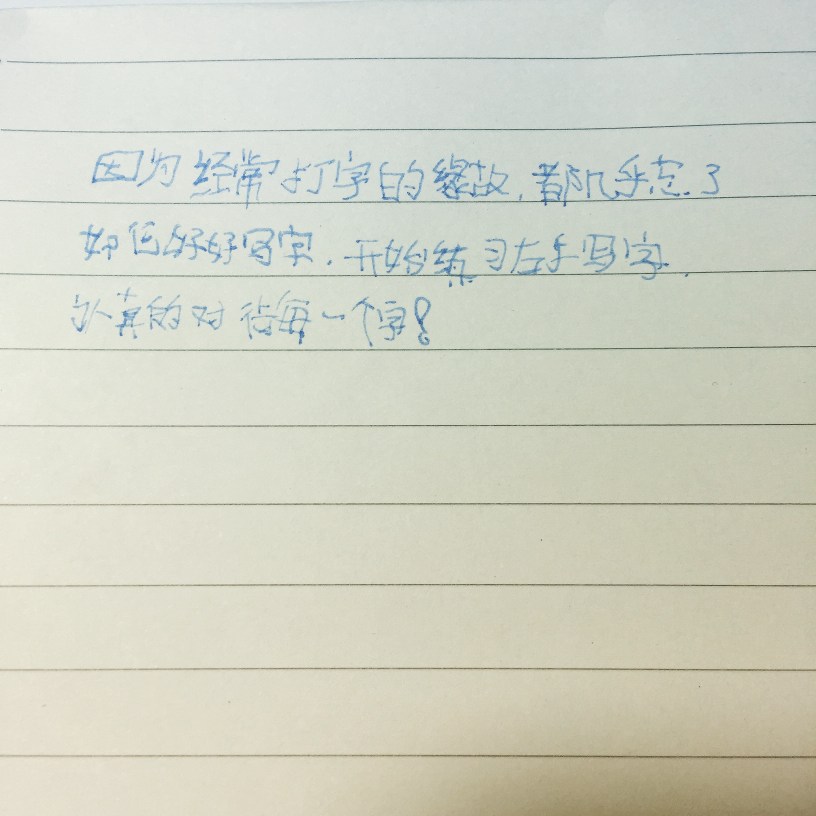 因为经常打字的缘故,都几乎忘了
如何好好写字.开始练习左手写字.
认真的对待每一个字!